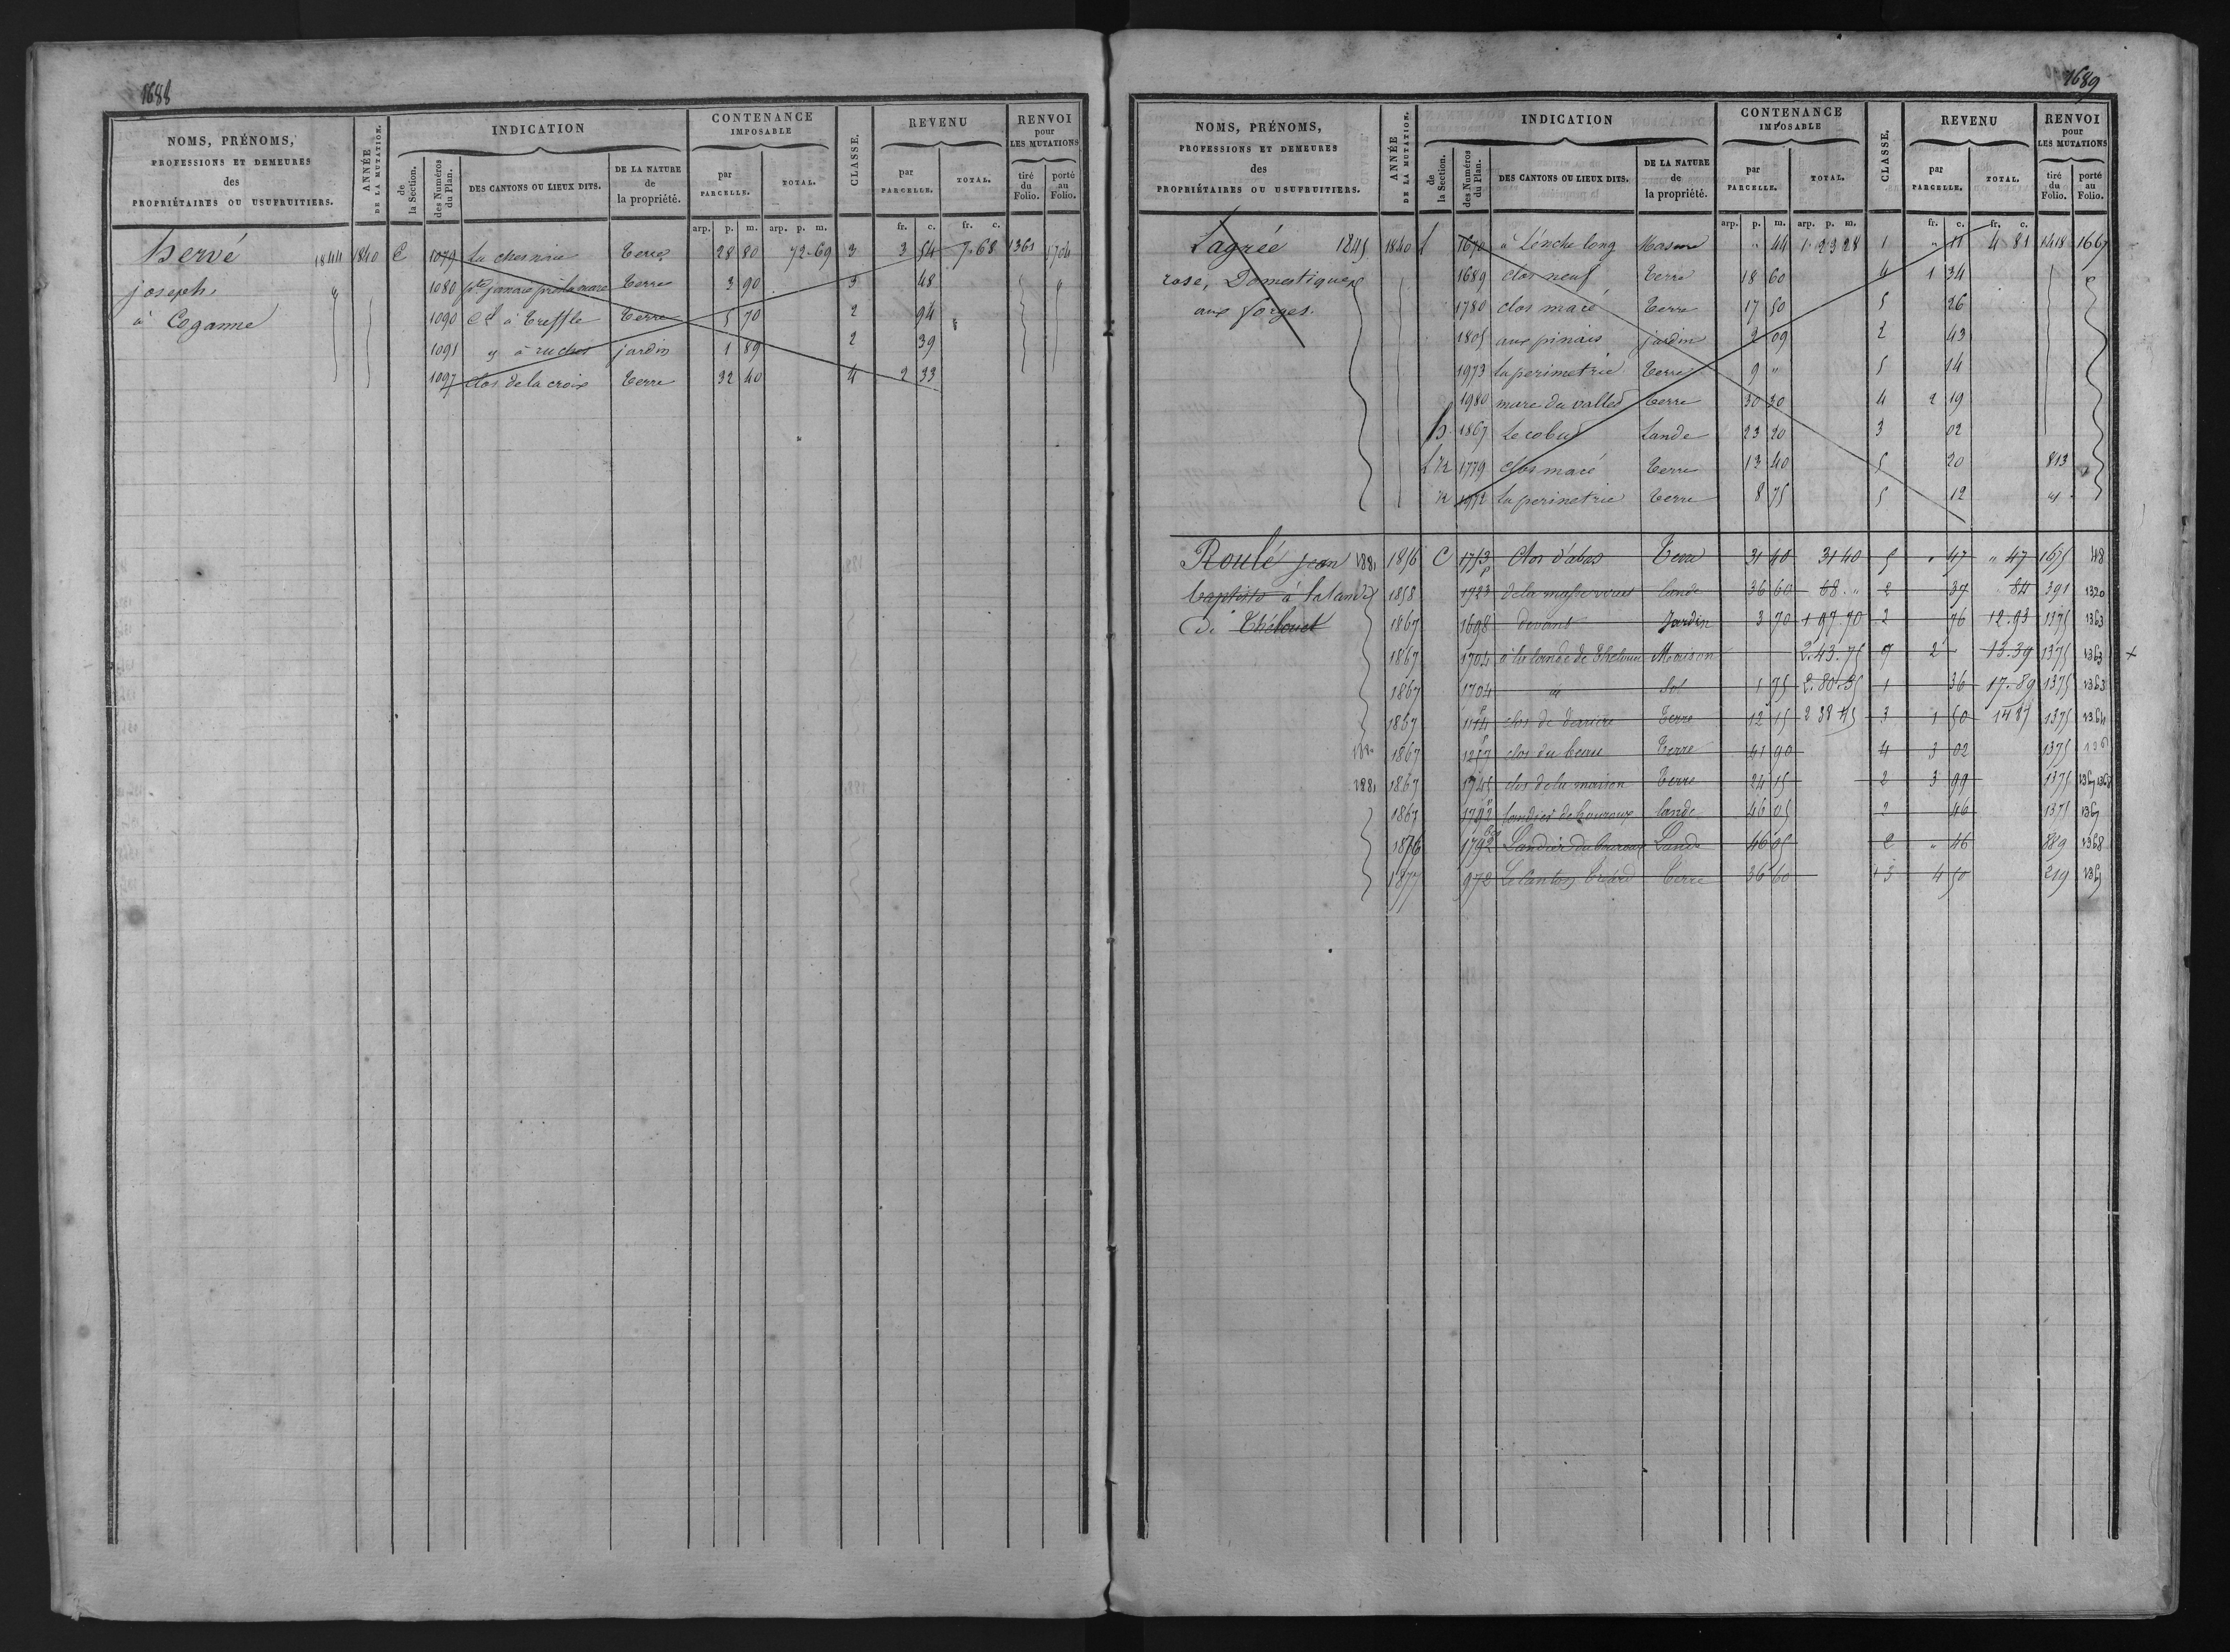 1688
NOMS, PRÉNOMS, PROFESSIONS ET DEMEURES des PROPRIÉTAIRES OU USUFRUITIERS.
ANNÉE DE LA MUTATION.
INDICATION
de la Section.
des Numéros du Plan.
DES CANTONS OU LIEUX DITS.
DE LA NATURE de la propriété.
CONTENANCE IMPOSABLE
par PARCELLE.
TOTAL.
CLASSE.
REVENU
par PARCELLE.
TOTAL.
RENVOI pour LES MUTATIONS
tiré du Folio.
porté au Folio.
arp. p. m. arp. p. m. fr. c. fr. c.
hervé 1844 1840 C 1079 La chesnaie terre 28 80 72.69 3 3 54 7.68 1361 1704
joseph 1080 terre 3 90 3 48
à Coganne 1090 à treffle terre 5 70 2 94
1091 à ruches jardin 1 89 2 39
1097 clos de la croix terre 32 40 4 2 33
1689
NOMS, PRÉNOMS, PROFESSIONS ET DEMEURES des PROPRIÉTAIRES OU USUFRUITIERS.
ANNÉE DE LA MUTATION.
INDICATION
de la Section.
des Numéros du Plan.
DES CANTONS OU LIEUX DITS.
DE LA NATURE de la propriété.
CONTENANCE IMPOSABLE
par PARCELLE.
TOTAL.
CLASSE.
REVENU
par PARCELLE.
TOTAL.
RENVOI pour LES MUTATIONS
tiré du Folio.
porté au Folio.
arp. p. m. arp. p. m. fr. c. fr. c.
Lagrée 1845 1840 1670 long Masure " 44 1.23 28 1 " 11 4 81 1418 1667
rose, Domestique 1689 clos neuf terre 18 60 4 1 34
aux forges. 1780 clos macé terre 17 50 5 26
1805 aux pinais jardin 2 09 2 43
1973 la perimetrie terre 9 " 5 14
1980 mare du vallet terre 30 30 4 2 19
1867 Lande 23 20 3 02
1779 clos macé terre 13 40 5 20 813
1972 la perimetrie terre 8 75 5 12
Roulé jean 1881 1856 C 1753 p Clos d'abas Terre 31 40 31 40 5 " 47 " 47 1675 418
baptiste à la lande 1858 1723 lande 36 60 68 " 2 37 84 391 1320
de Thélouet 1867 1698 devant Jardin 3 70 1 97.70 2 76 12.93 1375 1363
1867 1704 à la lande de Maison 2.43.75 7 2 13.39 1375 1363 x
1867 1704 id Sol 1 75 2.80.35 1 36 17.89 1375 1363
1867 clos de derrière terre 12 15 2 38 45 3 1 50 14 87 1375 1364
1867 1257 clos du terre 41 90 4 3 02 1375
1881 1867 1745 clos de la maison terre 24 15 2 3 99 1375
1867 1792 lande 46 05 2 46 1375
1876 1792 Lande 46 05 2 " 46 889 1368
1877 972 terre 36 60 3 4 50 219